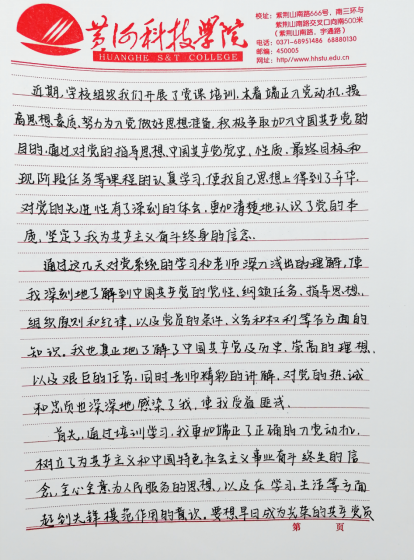 黄河科技学院
HUANGHE S&T COLLEGE
校址：紫荆山南路666号，南三环与
紫荆山南路交叉口向南500米
（紫荆山南路，宇通路）
电话：0371-68951486 68880130
邮编：450005
网址：http://www.hhstu.edu.cn
近期，学校组织我们开展了党课培训，本着端正入党动机，提
高思想素质，努力为入党做好思想准备，积极争取加入中国共产党的
目的，通过对党的指导思想、中国共产党党史、性质、最终目标和
现阶段任务等课程的认真学习，使我自己思想上得到了升华，
对党的先进性有了深刻的体会，更加清楚地认识了党的本
质，坚定了我为共产主义奋斗终身的信念。
通过这几天对党系统的学习和老师深入浅出的理解，使
我深刻地了解到中国共产党的党性、纲领任务、指导思想、
组织原则和纪律，以及党员的条件、义务和权利等各方面的
知识。我也真正地了解了中国共产党及历史、崇高的理想、
以及艰巨的任务，同时老师精彩的讲解，对党的热诚
和忠贞也深深地感染了我，使我受益匪浅。
首先，通过培训学习，我更加端正了正确的入党动机，
树立了为共产主义和中国特色社会主义事业奋斗终生的信
念，全心全意为人民服务的思想，以及在学习、生活等方面
起到先锋模范作用的意识。要想早日成为光荣的共产党员
第 页